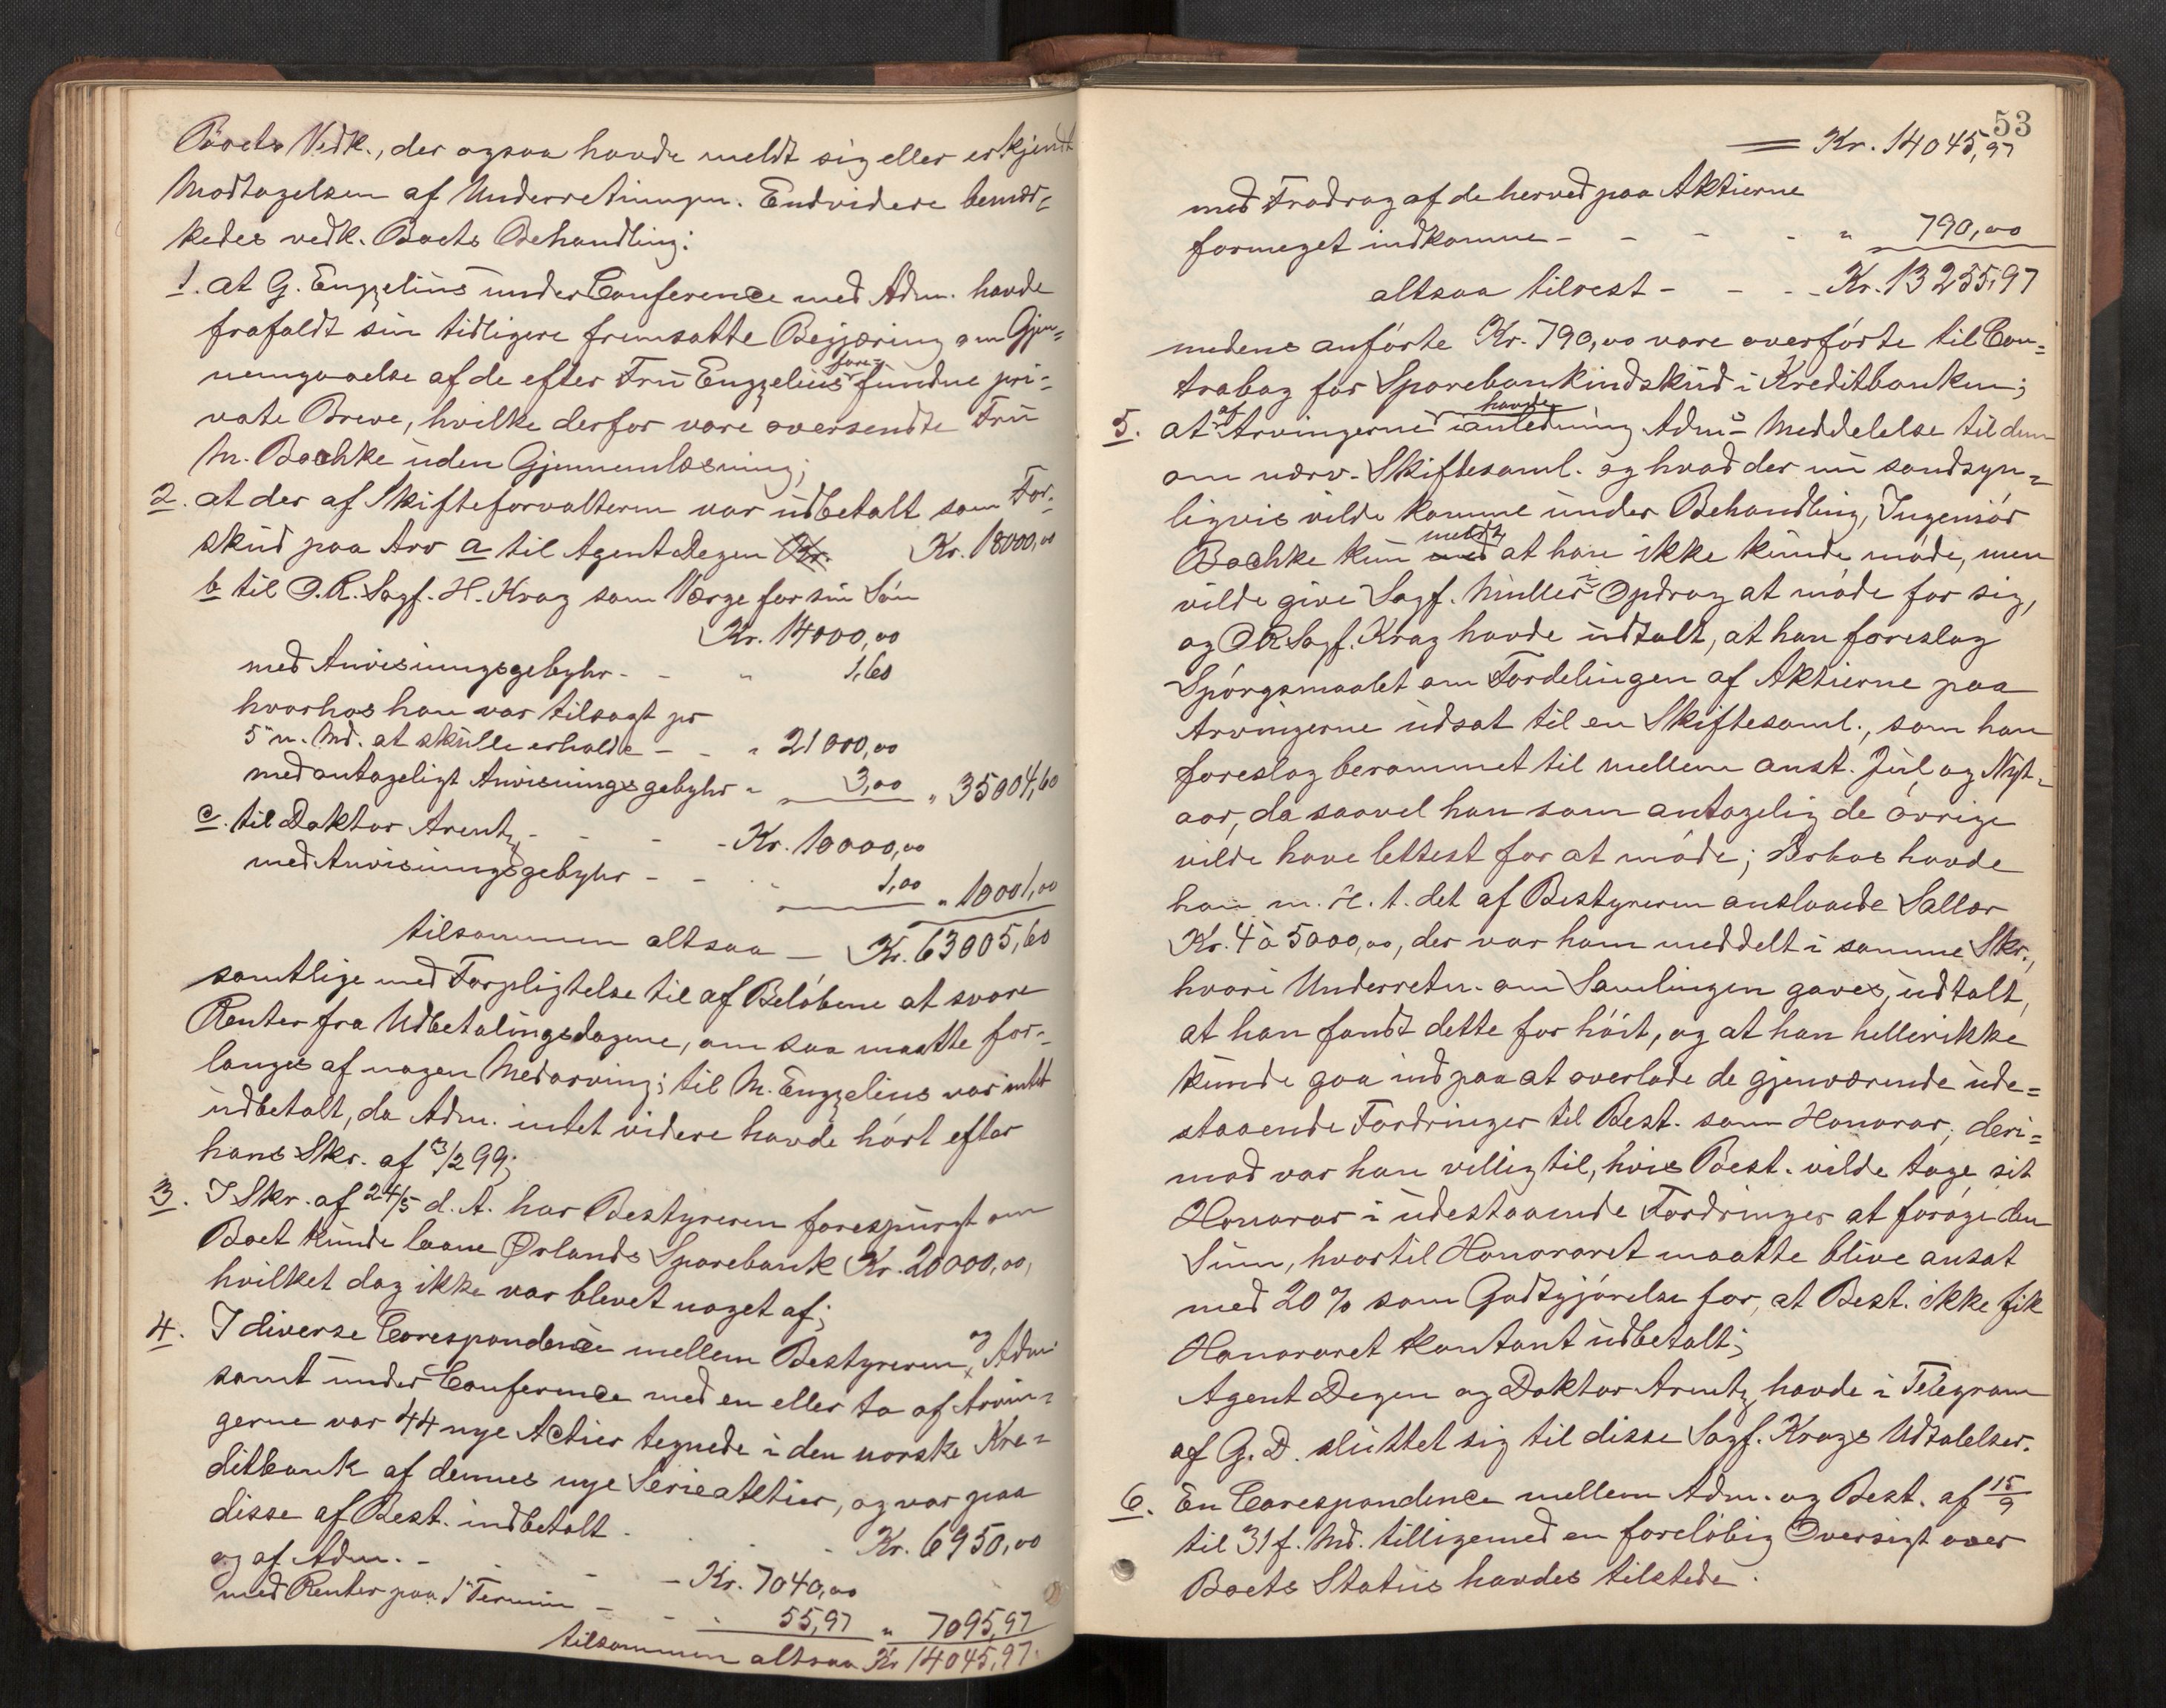 Boets Vedk., der ogsaa havde meldt sig eller erkjendt
Modtagelsen af Underretningen. Endvidere bemær=
kedes vedk. Boets Behandling:
1. at G. Engzelius under Conference med Adm. havde
frafaldt sin tidligere fremsatte Begjæring om Gjen=
nemgaaelse af de efter Fru Engzelius fore=fundne pri=
vate Breve, hvilke derfor vare oversendte Fru
M. Bachke uden Gjennemlæsning;
2. at der af Skifteforvalteren var udbetalt som For=
skud paa Arv a til Agent Degen Kr. Kr. 18000,00
b til O.R. Sagf. H. Krag som Værge for sin Søn
Kr. 14000,00
med Anvisningsgebyhr - - " 1,60
hvorhos han var tilsagt pr
5 n. Md. at skulle erholde - - " 21000,00
med antageligt Anvisningsgebyhr " 3,00 " 35004,60
c. til Doktor Arentz - - - Kr. 10000,00
med Anvisningsgebyhr - - - " 1,00 " 10001,00
tilsammen altsaa - Kr. 63005,60
samtlige med Forpligtelse til af Beløbene at svare
Renter fra Udbetalingsdagene, om saa maatte for=
langes af nogen Medarving; til M. Engzelius var intet
udbetalt, da Adm. intet videre havde hørt efter
hans Skr. af 3/2 99;
3. I Skr. af 24/5 d. A. har Bestyreren forespurgt om
Boet kunde laane Ørlands Sparebank Kr. 20000,00,
hvilket dog ikke var blevet noget af;
4. I diverse Corespondence mellem Bestyreren og Adm.
samt under Conference med en eller to af Arvin=
gerne var 44 nye Actier tegnede i den norske Kre=
ditbank af dennes nye Serieaktier, og var paa
disse af Best. indbetalt - - - Kr. 6950,00
og af Adm. - - - - Kr. 7040,00
med Renter paa 1' Termin - - - 55,97 " 7095,97
tilsammen altsaa Kr 14045,97.
53
= Kr. 14045,97
med Fradrag af de herved paa Aktierne
formeget indkomne - - - - " 790,00
altsaa tilrest - - - Kr. 13255,97
medens anførte Kr. 790,00 vare overførte til Con=
trabog for Sparebankindskud i Kreditbanken;
5. at af Arvingerne havde i anledning Adm.s Meddelelse til dem
om nærv. Skiftesaml. og hvad der nu sandsyn=
ligvis vilde komme under Behandling, Ingeniør
Bachke kun meldt at han ikke kunde møde, men
vilde give Sagf. Müller i Opdrag at møde for sig,
og OR Sagf. Krag havde udtalt, at han foreslog
Spørgsmaalet om Fordelingen af Aktierne paa
Arvingerne udsat til en Skiftesaml., som han
foreslog berammet til mellem anst. Jul og Nyt=
aar, da saavel han som antagelig de øvrige
vilde have lettest for at møde; Derhos havde
han m. H. t. det af Bestyreren anslaaede Sallær
Kr. 4 à 5000,00, der var ham meddelt i samme Skr.,
hvori Underretn. om Samlingen gaves, udtalt,
at han fandt dette for høit, og at han hellerikke
kunde gaa ind paa at overlade de gjenværende ude=
staaende Fordringer til Best. som Honorar; deri=
mod var han villig til, hvis Best. vilde tage sit
Honorar i udestaaende Fordringer at forøge den
Sum, hvortil Honoraret maatte blive ansat
med 20 % som Godtgjørelse for, at Best. ikke fik
Honoraret kontant udbetalt;
Agent Degen og Doktor Arentz havde i Telegram
af G. D. sluttet sig til disse Sagf. Krags Udtalelser.
6. En Corespondence mellem Adm. og Best. af 15/9
til 31 f. Md. tilligemed en foreløbig Oversigt over
Boets Status havdes tilstede.